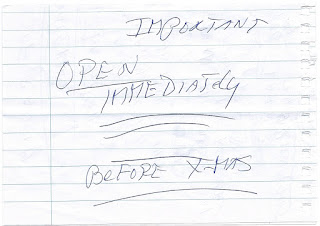 IMPORTANT
OPEN
IMMEDIATdly
BeFORE X-MAS